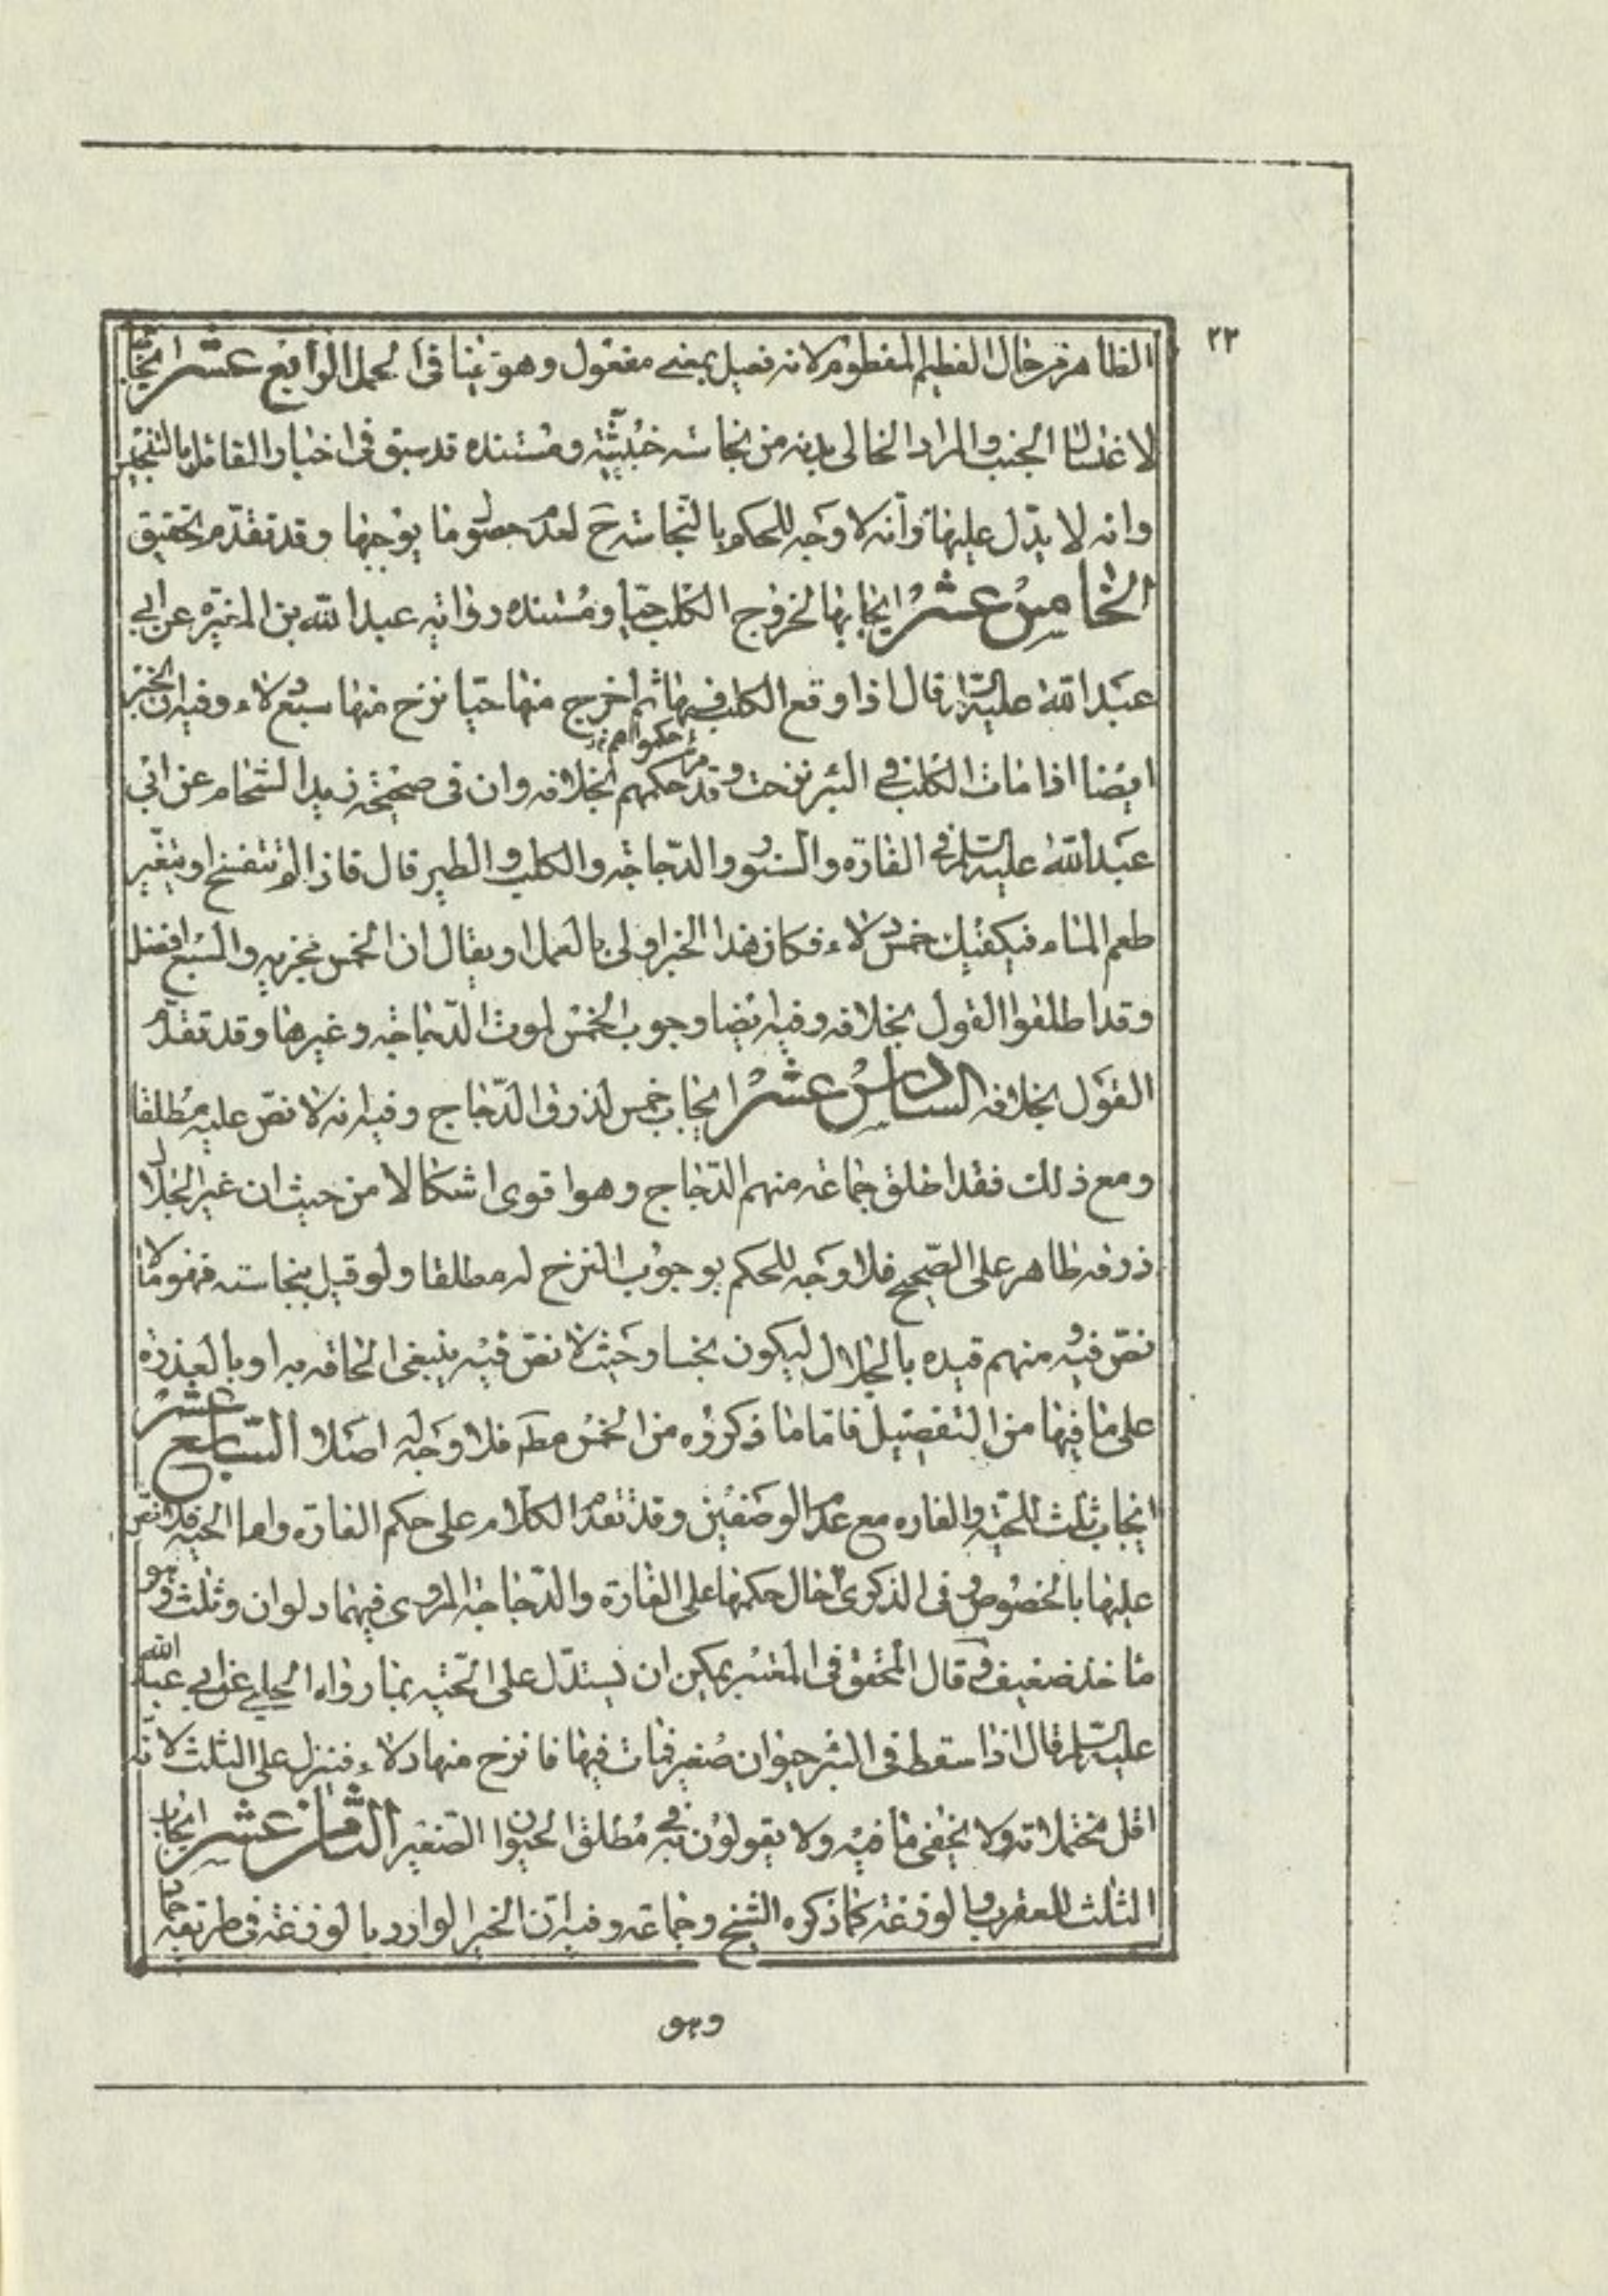 ٢٣
الظاهر من حال الفطيم المفطوم لانه فعيل بمعنى مفعول وهو ينافى الحمل الرابع عشر ايجابها
لاغتسال الجنب والمراد الخالى بدنه من نجاسة خبثية ومستنده قد سبق فى اخبار القائل بالتنجيس
وانه لا يدل عليها وانه لا وجه للحكم بالنجاسة ح لعدم حصول ما يوجبها وقد تقدم تحقيق
الخامس عشر ايجابها لخروج الكلب حيا ومستنده رواية عبد الله بن المغيره عن ابى
عبد الله عليه السلم قال اذا وقع الكلب فيها ثم اخرج منها حيا نزح منها سبع دلاء وفيه ان الخبر
ايضا اذا مات الكلب فى البئر نزحت وقد حكمهم بخلافه وان فى صحيحة زيد الشحام عن ابى
عبد الله عليه السلم فى الفارة والسنور والدجاجة والكلب والطير قال فاذا لم تتفسخ او يتغير
طعم الماء فيكفيك خمس دلاء فكان هذا الخبر اولى بالعمل او يقال ان الخمس مجزيه والسبع افضل
وقد اطلقوا القول بخلافه وفيه ايضا وجوب الخمس لموت الدجاجة وغيرها وقد تقدم
القول بخلافه السادس عشر ايجاب خمس لذرق الدجاج وفيه انه لا نص عليه مطلقا
ومع ذلك فقد اطلق جماعة منهم الدجاج وهو اقوى اشكالا من حيث ان غير الجلال
ذرقه طاهر على الصحيح فلا وجه للحكم بوجوب النزح له مطلقا ولو قيل بنجاسته فهو مما لا
نص فيه ومنهم قيده بالجلال ليكون نجسا وحيث لا نص فيه ينبغى الحاقه به او بالعذرة
على ما فيها من التفصيل فاما ما ذكروه من الخمس مط فلا وجه له اصلا السابع عشر
ايجاب ثلث للحية والفاره مع عدم الوصفين وقد تقدم الكلام على حكم الفارة واما الحية فلا نص
عليها بالخصوص وفى الذكرى احال حكمها على الفارة والدجاجة المروى فيهما دلوان وثلث وهو
ماخذ ضعيف وقال المحقق فى المعتبر يمكن ان يستدل على الحية بما رواه الحلبى عن ابى عبد الله
عليه السلم قال اذا سقط فى البئر حيوان صغير فمات فيها فانزح منها دلاء فينزل على الثلث لانه
اقل محتملاته ولا يخفى ما فيه ولا يقولون به فى مطلق الحيوان الصغير الثامن عشر ايجاب
الثلث للعقرب والوزغة كما ذكره الشيخ وجماعة وفيه ان الخبر الوارد بالوزغة فى طريقه
وهو